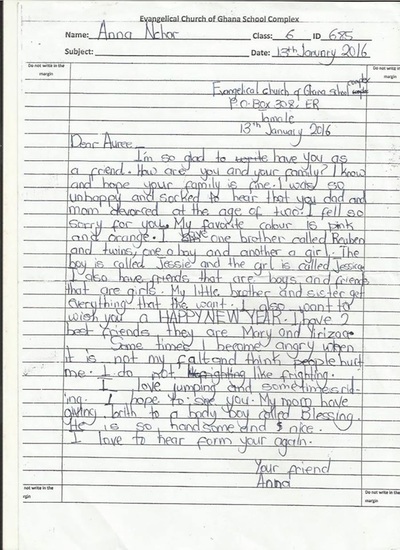 Evangelical Church of Ghana School Complex
Name: Anna Nchor Class: 6 ID 685
Subject: Date: 13th January 2016
Do not write in the margin
Do not write in the margin
Evangelical church of Ghana school complex
P.O-Box 308, ER
Tamale
13th January 2016
Dear Auree
I'm so glad to have you as
a friend. How are you and your family? I know
and hope your family is fine. I was so
unhappy and socked to hear that you dad and
mom devorced at the age of two. I fell so
sorry for you. My favorite colour is pink
and orange. I have one brother called Reuben
and twins, one a boy and another a girl. The
boy is called Jessie and the girl is called Jessica
I also have friends that are boys and friends
that are girls. My little brother and sister get
everything that the want. I also want to
wish you a HAPPY NEW YEAR. I have 2
best friends they are Mary and
Some times I become angry when
it is not my falt and think people hurt
me. I do not like frighting.
I love jumping and sometimes rid-
ing. I hope to see you. My mom have
giving birth to a body boy called Blessing.
He is so handsome and nice.
I love to hear form your again.
Your friend
Anna
not write in the
rgin
Do not write in the
margin